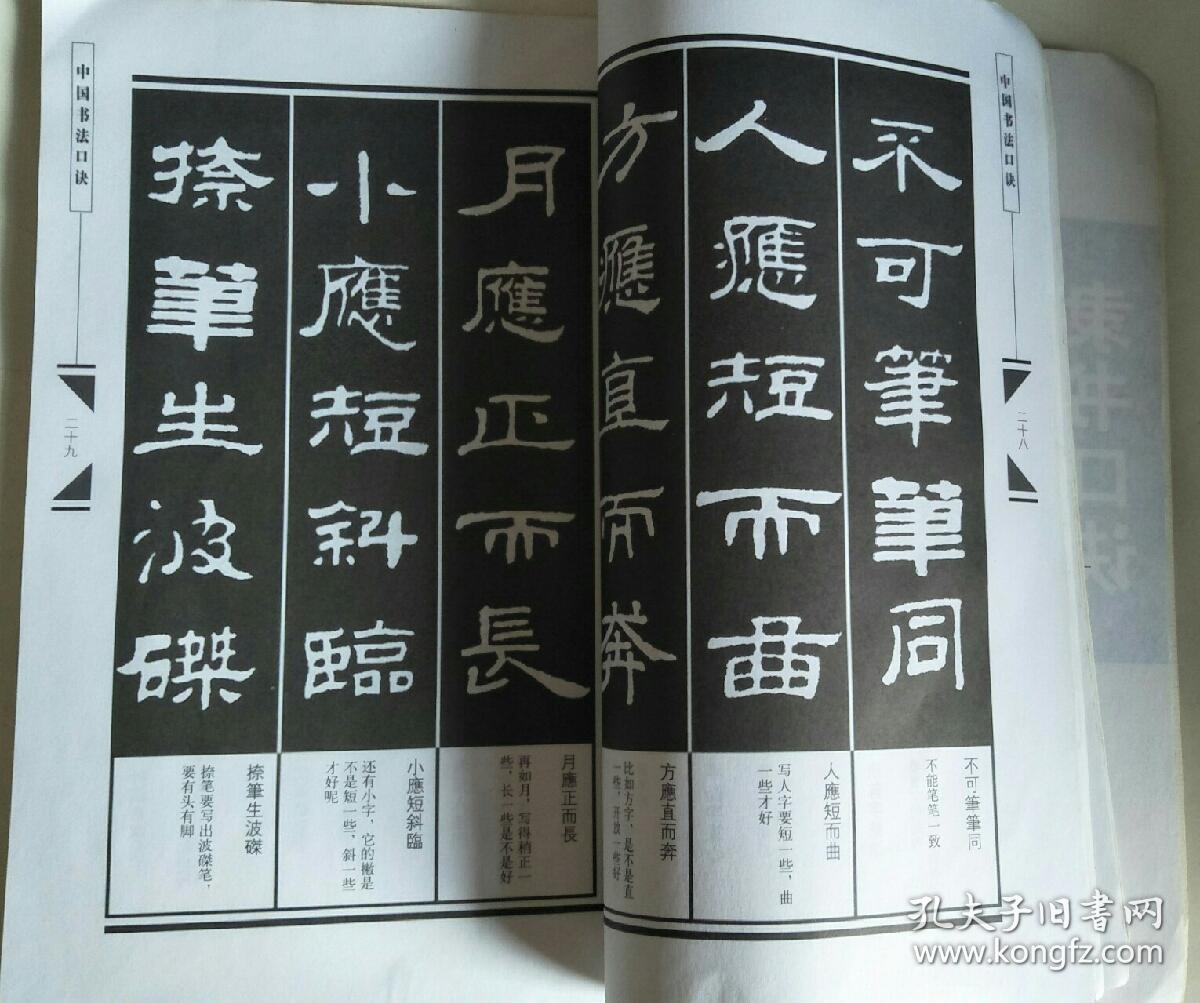 中国书法口诀
二十八
不可筆筆同
人應短而曲
方應直而奔
不可筆筆同
不能笔笔一致
人應短而曲
写人字要短一些，曲
一些才好
方應直而奔
比如方字，是不是直
一些，开放一些好
中国书法口诀
二十九
月應正而長
小應短斜臨
捺筆生波磔
月應正而長
再如月，写得稍正一
些，长一些是不是好
小應短斜臨
还有小字，它的撇是
不是短一些，斜一些
才好呢
捺筆生波磔
捺笔要写出波磔笔，
要有头有脚
隶书口诀
孔夫子旧書网
www.kongfz.com